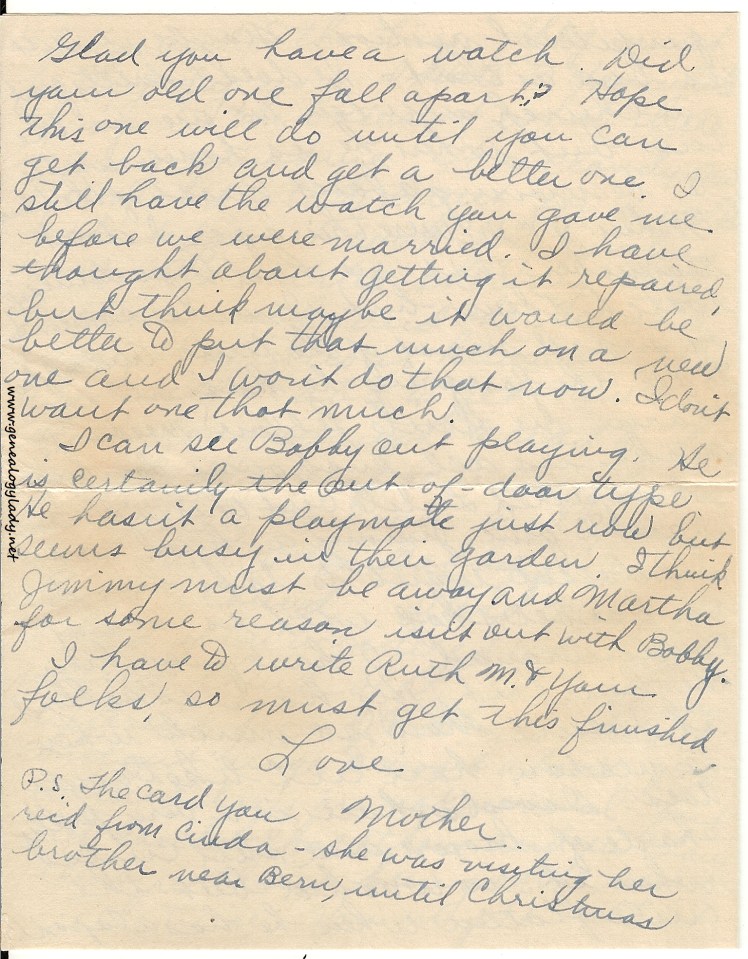 Glad you have a watch. Did
your old one fall apart? Hope
this one will do until you can
get back and get a better one. I
still have the watch you gave me
before we were married. I have
thought about getting it repaired,
but think maybe it would be
better to put that much on a new
one and I won't do that now. I don't
want one that much.
I can see Bobby out playing. He
is certainly the out-of-door type
He hasn't a playmate just now but
seems busy in their garden. I think
Jimmy must be away and Martha
for some reason isn't out with Bobby.
I have to write Ruth M. & your
folks, so must get this finished
Love
Mother
P.S. The card you
rec'd from Cinda - she was visiting her
brother near Bern, until Christmas
www.genealogylady.net